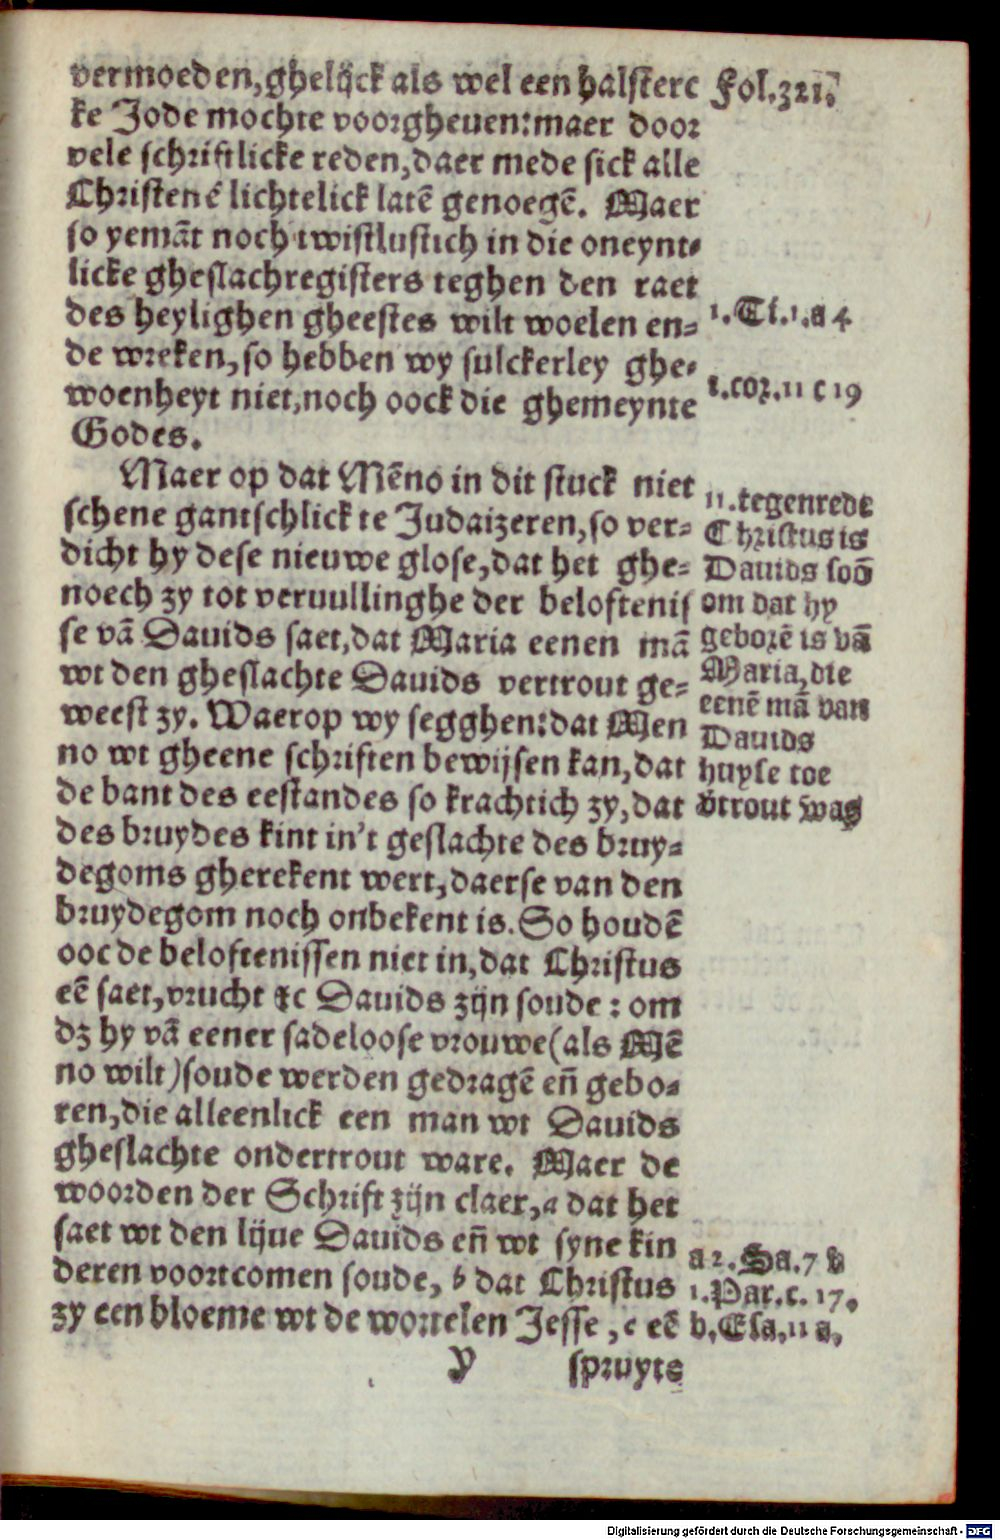 vermoeden, ghelijck als wel een halsterc
ke Jode mochte voorgheuen: maer door
vele schriftlicke reden, daer mede sick alle
Christenē lichtelick latē genoegē. Maer
so yemāt noch twistlustich in die oneynt-
licke gheslachregisters teghen den raet
des heylighen gheestes wilt woelen en-
de wreken, so hebben wy sulckerley ghe-
woenheyt niet, noch oock die ghemeynte
Godes.
Maer op dat Mēno in dit stuck niet
schene gantschlick te Judaizeren, so ver-
dicht hy dese nieuwe glose, dat het ghe-
noech zy tot veruullinghe der beloftenis
se vā Dauids saet, dat Maria eenen mā
wt den gheslachte Dauids vertrout ge-
weest zy. Waerop wy segghen: dat Men
no wt gheene schriften bewijsen kan, dat
de bant des eestandes so krachtich zy, dat
des bruydes kint in't geslachte des bruy-
degoms gherekent wert, daerse van den
bruydegom noch onbekent is. So houdē
ooc de beloftenissen niet in, dat Christus
eē saet, vrucht &c Dauids zijn soude: om
dz hy vā eener sadeloose vrouwe (als Mē
no wilt) soude werden gedragē en̄ gebo-
ren, die alleenlick een man wt Dauids
gheslachte ondertrout ware. Maer de
woorden der Schrift zijn claer, a dat het
saet wt den lijue Dauids en̄ wt syne kin
deren voortcomen soude, b dat Christus
zy een bloeme wt de wortelen Jesse, c eē
Y spruyte
Fol. 321.
1. Ti. 1. a 4
1. cor. 11 c 19
11. tegenrede
Christus is
Dauids soō
om dat hy
geborē is vā
Maria, die
eenē mā van
Dauids
huyse toe
v̄trout was
a 2. Sa. 7 b
1. Par. c. 17.
b. Esa. 11 a.
Digitalisierung gefördert durch die Deutsche Forschungsgemeinschaft - DFG